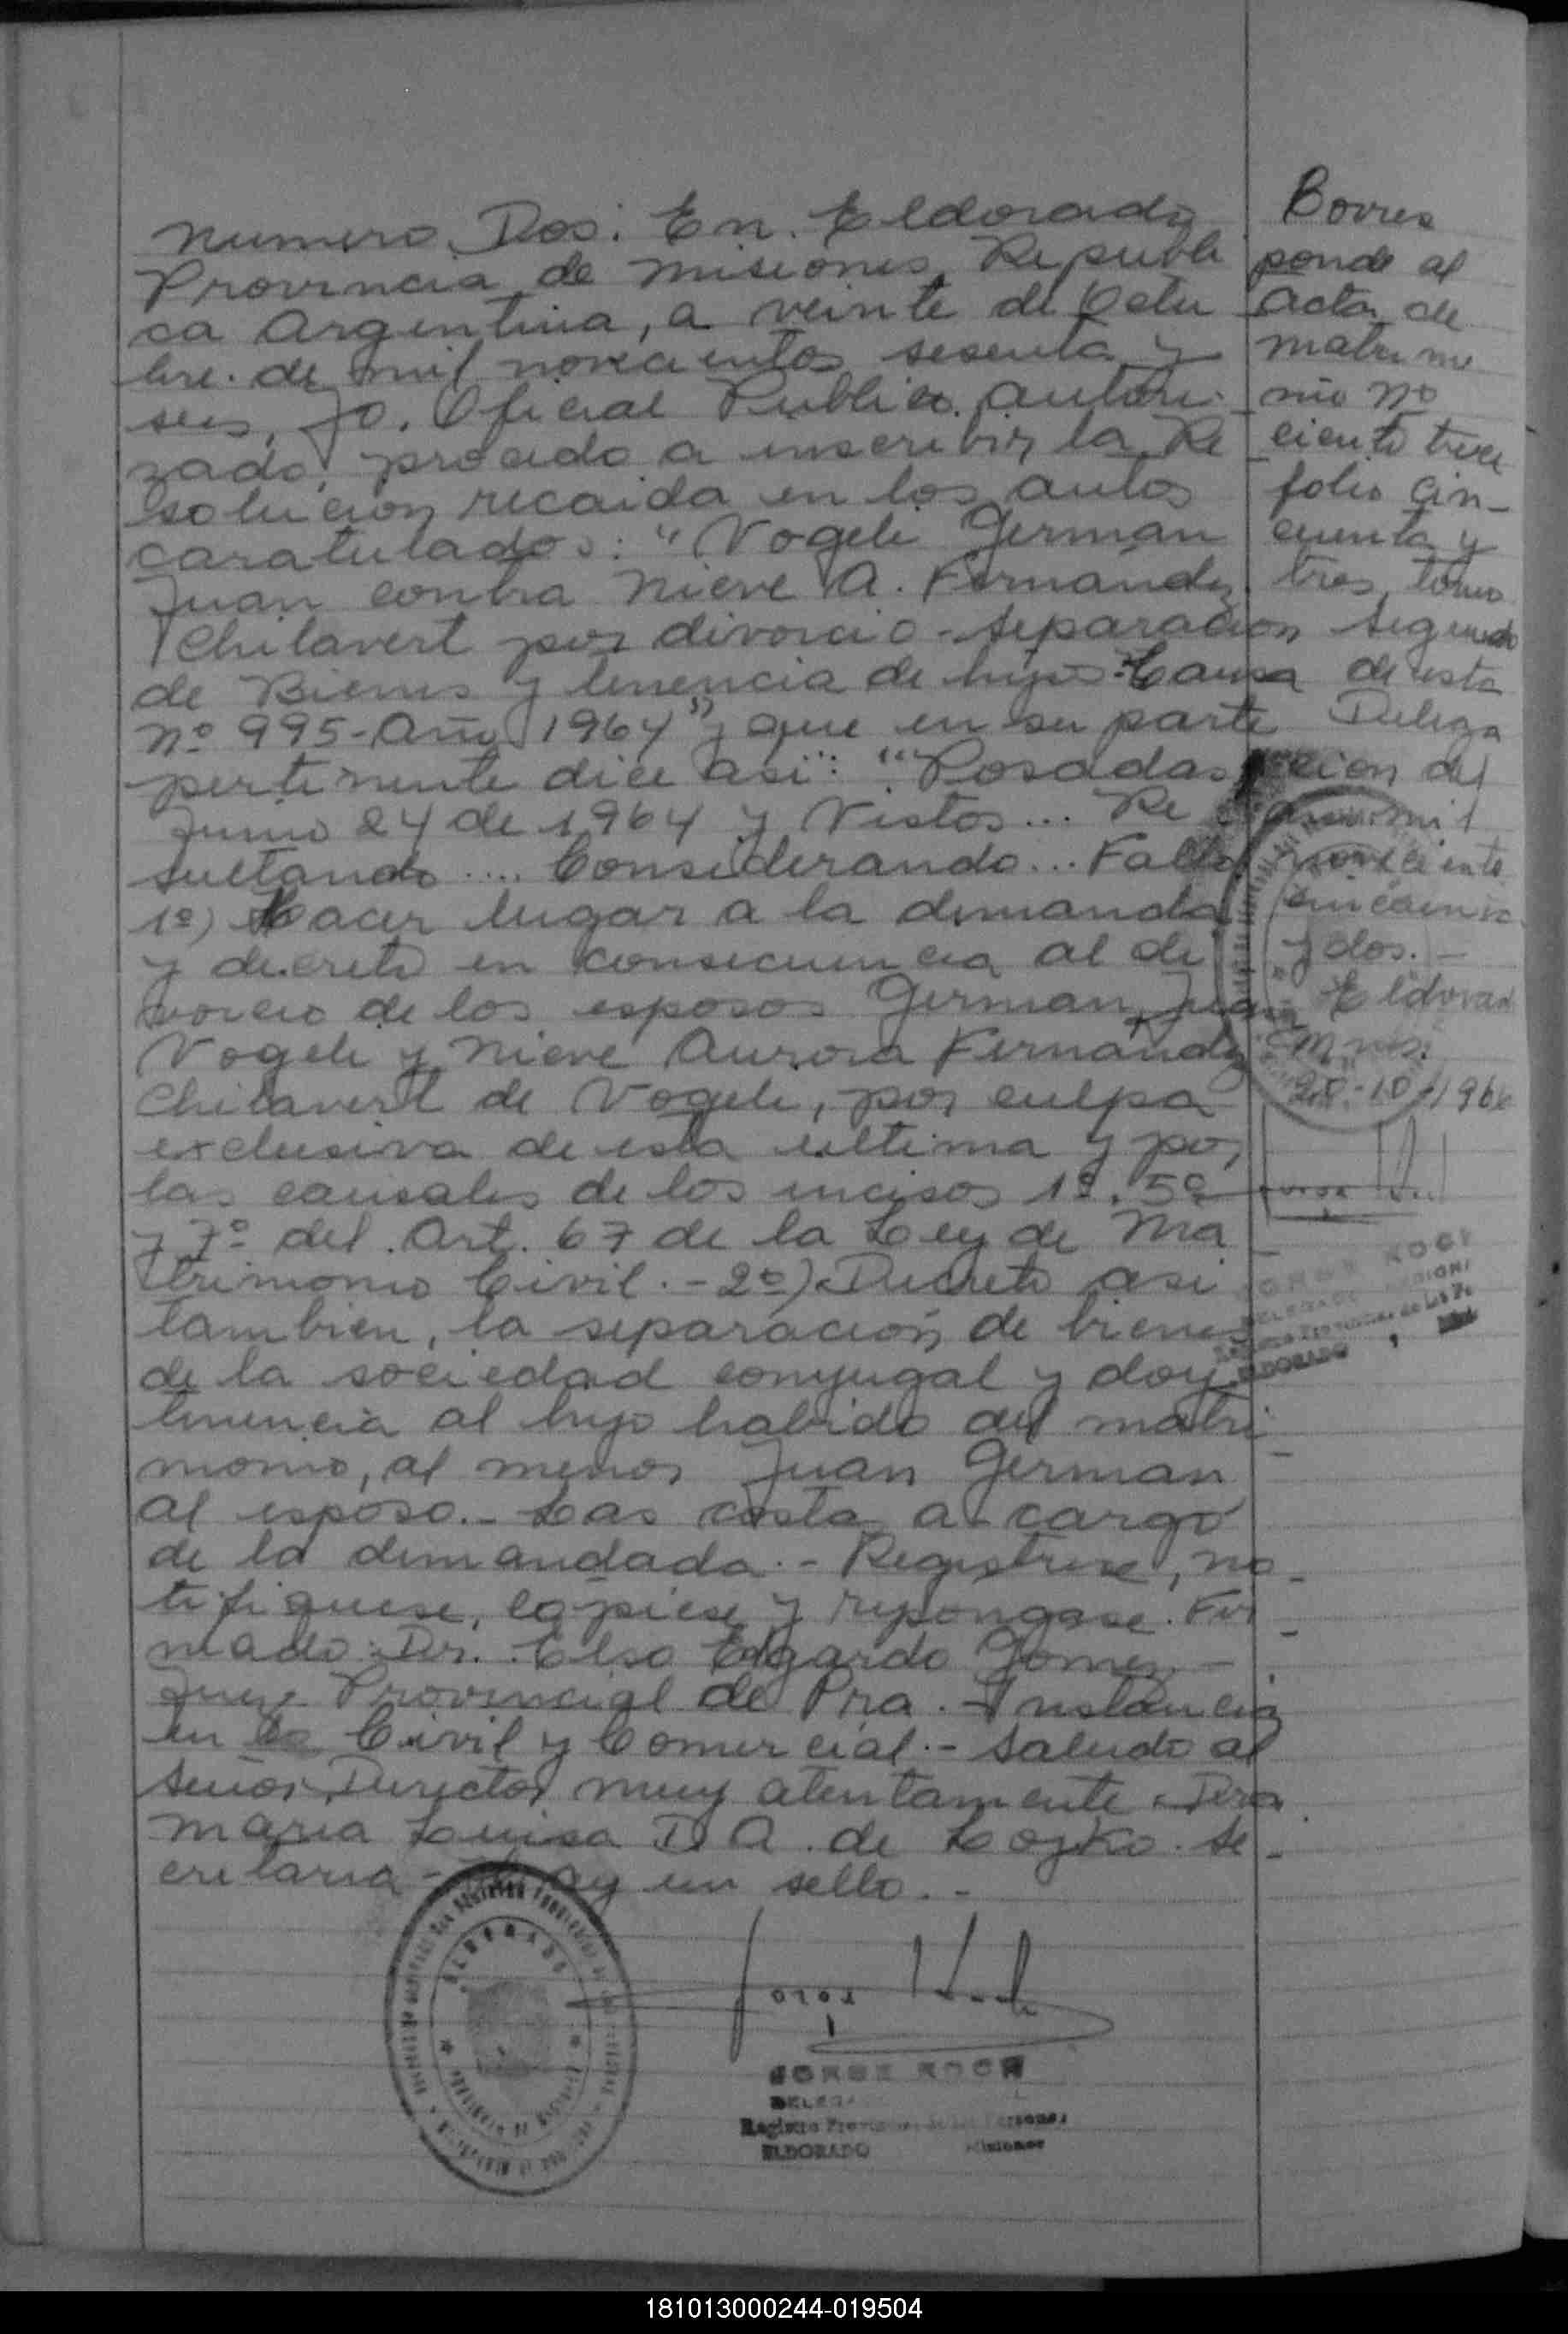 numero Dos: En Eldorado
Provincia de Misiones, Republi
ca Argentina, a veinte de Octu
bre de mil novecientos sesenta y
seis, Yo, Oficial Publico autori
zado, procedo a inscribir la Re
solucion recaida en los autos
caratulados: "Vogeli German
Juan contra Nieve A. Fernandez
Chilavert por divorcio - Separacion
de Bienes y tenencia de hijos - Causa
Nº 995 - Año 1964" y que en su parte
pertinente dice asi: "Posadas,
Junio 24 de 1964 y Vistos... Re
sultando .... Considerando... Fallo
1º) Hacer lugar a la demanda
y decreto en consecuencia al di
vorcio de los esposos German Juan
Vogeli y Nieve Aurora Fernandez
Chilavert de Vogeli, por culpa
exclusiva de esta ultima y por
las causales de los incisos 1º, 5º
y 7º del Art. 67 de la Ley de Ma
trimonio Civil. - 2º) Decreto asi
tambien, la separación de bienes
de la sociedad conyugal y doy
tenencia al hijo habido del matri
monio, al menor Juan German
al esposo. - Las costa a cargo
de la demandada. - Registrese, no
tifiquese, copiese y repongase. Fir
mado: Dr. Elso Edgardo Gomez -
Juez Provincial de Pra. Instancia
en lo Civil y Comercial. - Saludo al
Señor Director muy atentamente Dra
Maria Luisa D. A. de Lojko. Se
cretaria - Hay un sello. -
Corres
ponde al
Acta de
matrimo
nio nº
ciento trece
folio cin-
cuenta y
tres, tomo
segundo
de esta
Delega
cion del
año mil
novecientos
cincuenta
y dos. -
Eldorado
Mnes.
20-10-1966
JORGE KOCH
DELEGADO
ELDORADO
ELDORADO
JORGE KOCH
DELEGA
Registro Provincial de las Personas
ELDORADO Misiones
181013000244-019504